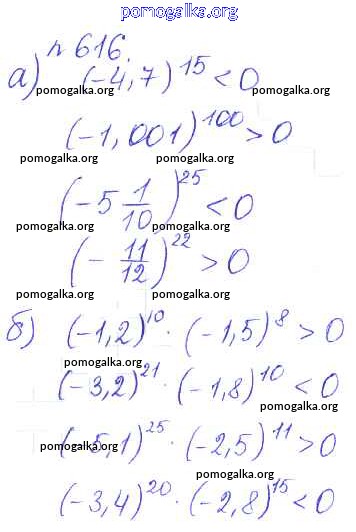 pomogalka.org
№ 616.
а) (-4,7)^15 < 0
pomogalka.org pomogalka.org
(-1,001)^100 > 0
pomogalka.org pomogalka.org
(-5 1/10)^25 < 0
pomogalka.org pomogalka.org
(- 11/12)^22 > 0
pomogalka.org pomogalka.org
б) (-1,2)^10 · (-1,5)^8 > 0
pomogalka.org
(-3,2)^21 · (-1,8)^10 < 0
pomogalka.org
(-5,1)^25 · (-2,5)^11 > 0
pomogalka.org
pomogalka.org
(-3,4)^20 · (-2,8)^15 < 0